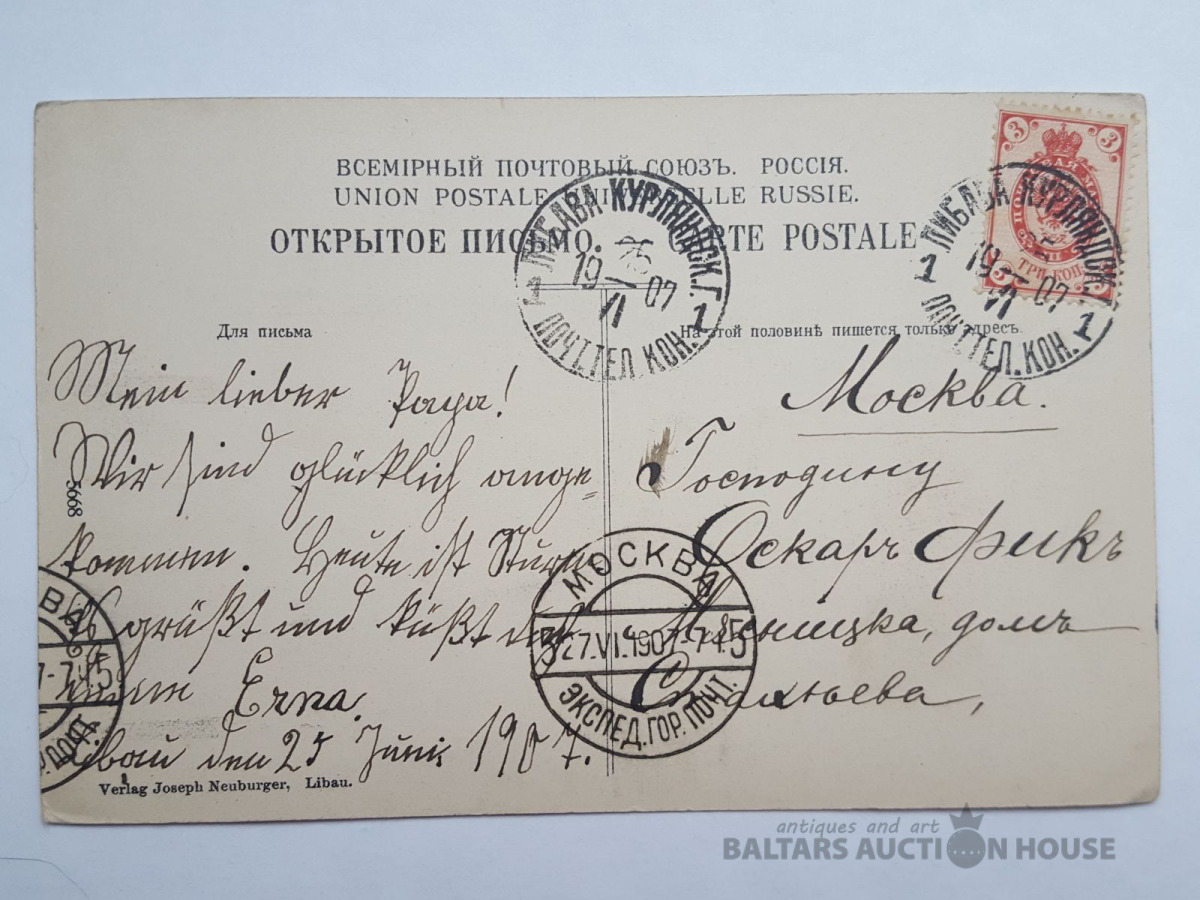 ВСЕМІРНЫЙ ПОЧТОВЫЙ СОЮЗЪ. РОССІЯ.
UNION POSTALE UNIVERSELLE RUSSIE.
ОТКРЫТОЕ ПИСЬМО. CARTE POSTALE
3 3
ТРИ КОП.
3 3
ЛИБАВА КУРЛЯНДСК.Г.
25
19 VI 07
1 1
ПОЧТ.ТЕЛ.КОН.
ЛИБАВА КУРЛЯНДСК.
19 VI 07
1 1
ПОЧТ.ТЕЛ.КОН.
Для письма
На этой половинѣ пишется только адресъ.
Mein lieber Papa!
Wir sind glücklich ange=
kommen. Heute ist Sturm
Es grüßt und küßt dich
Erna.
Libau den 25 Juni 1907.
5668
Verlag Joseph Neuburger, Libau.
Москва.
Господину
Оскаръ Фикъ
Мясницка, домъ
МОСКВА
27.VI.1907
ЭКСПЕД.ГОР.ПОЧТ.
antiques and art
BALTARS AUCTION HOUSE